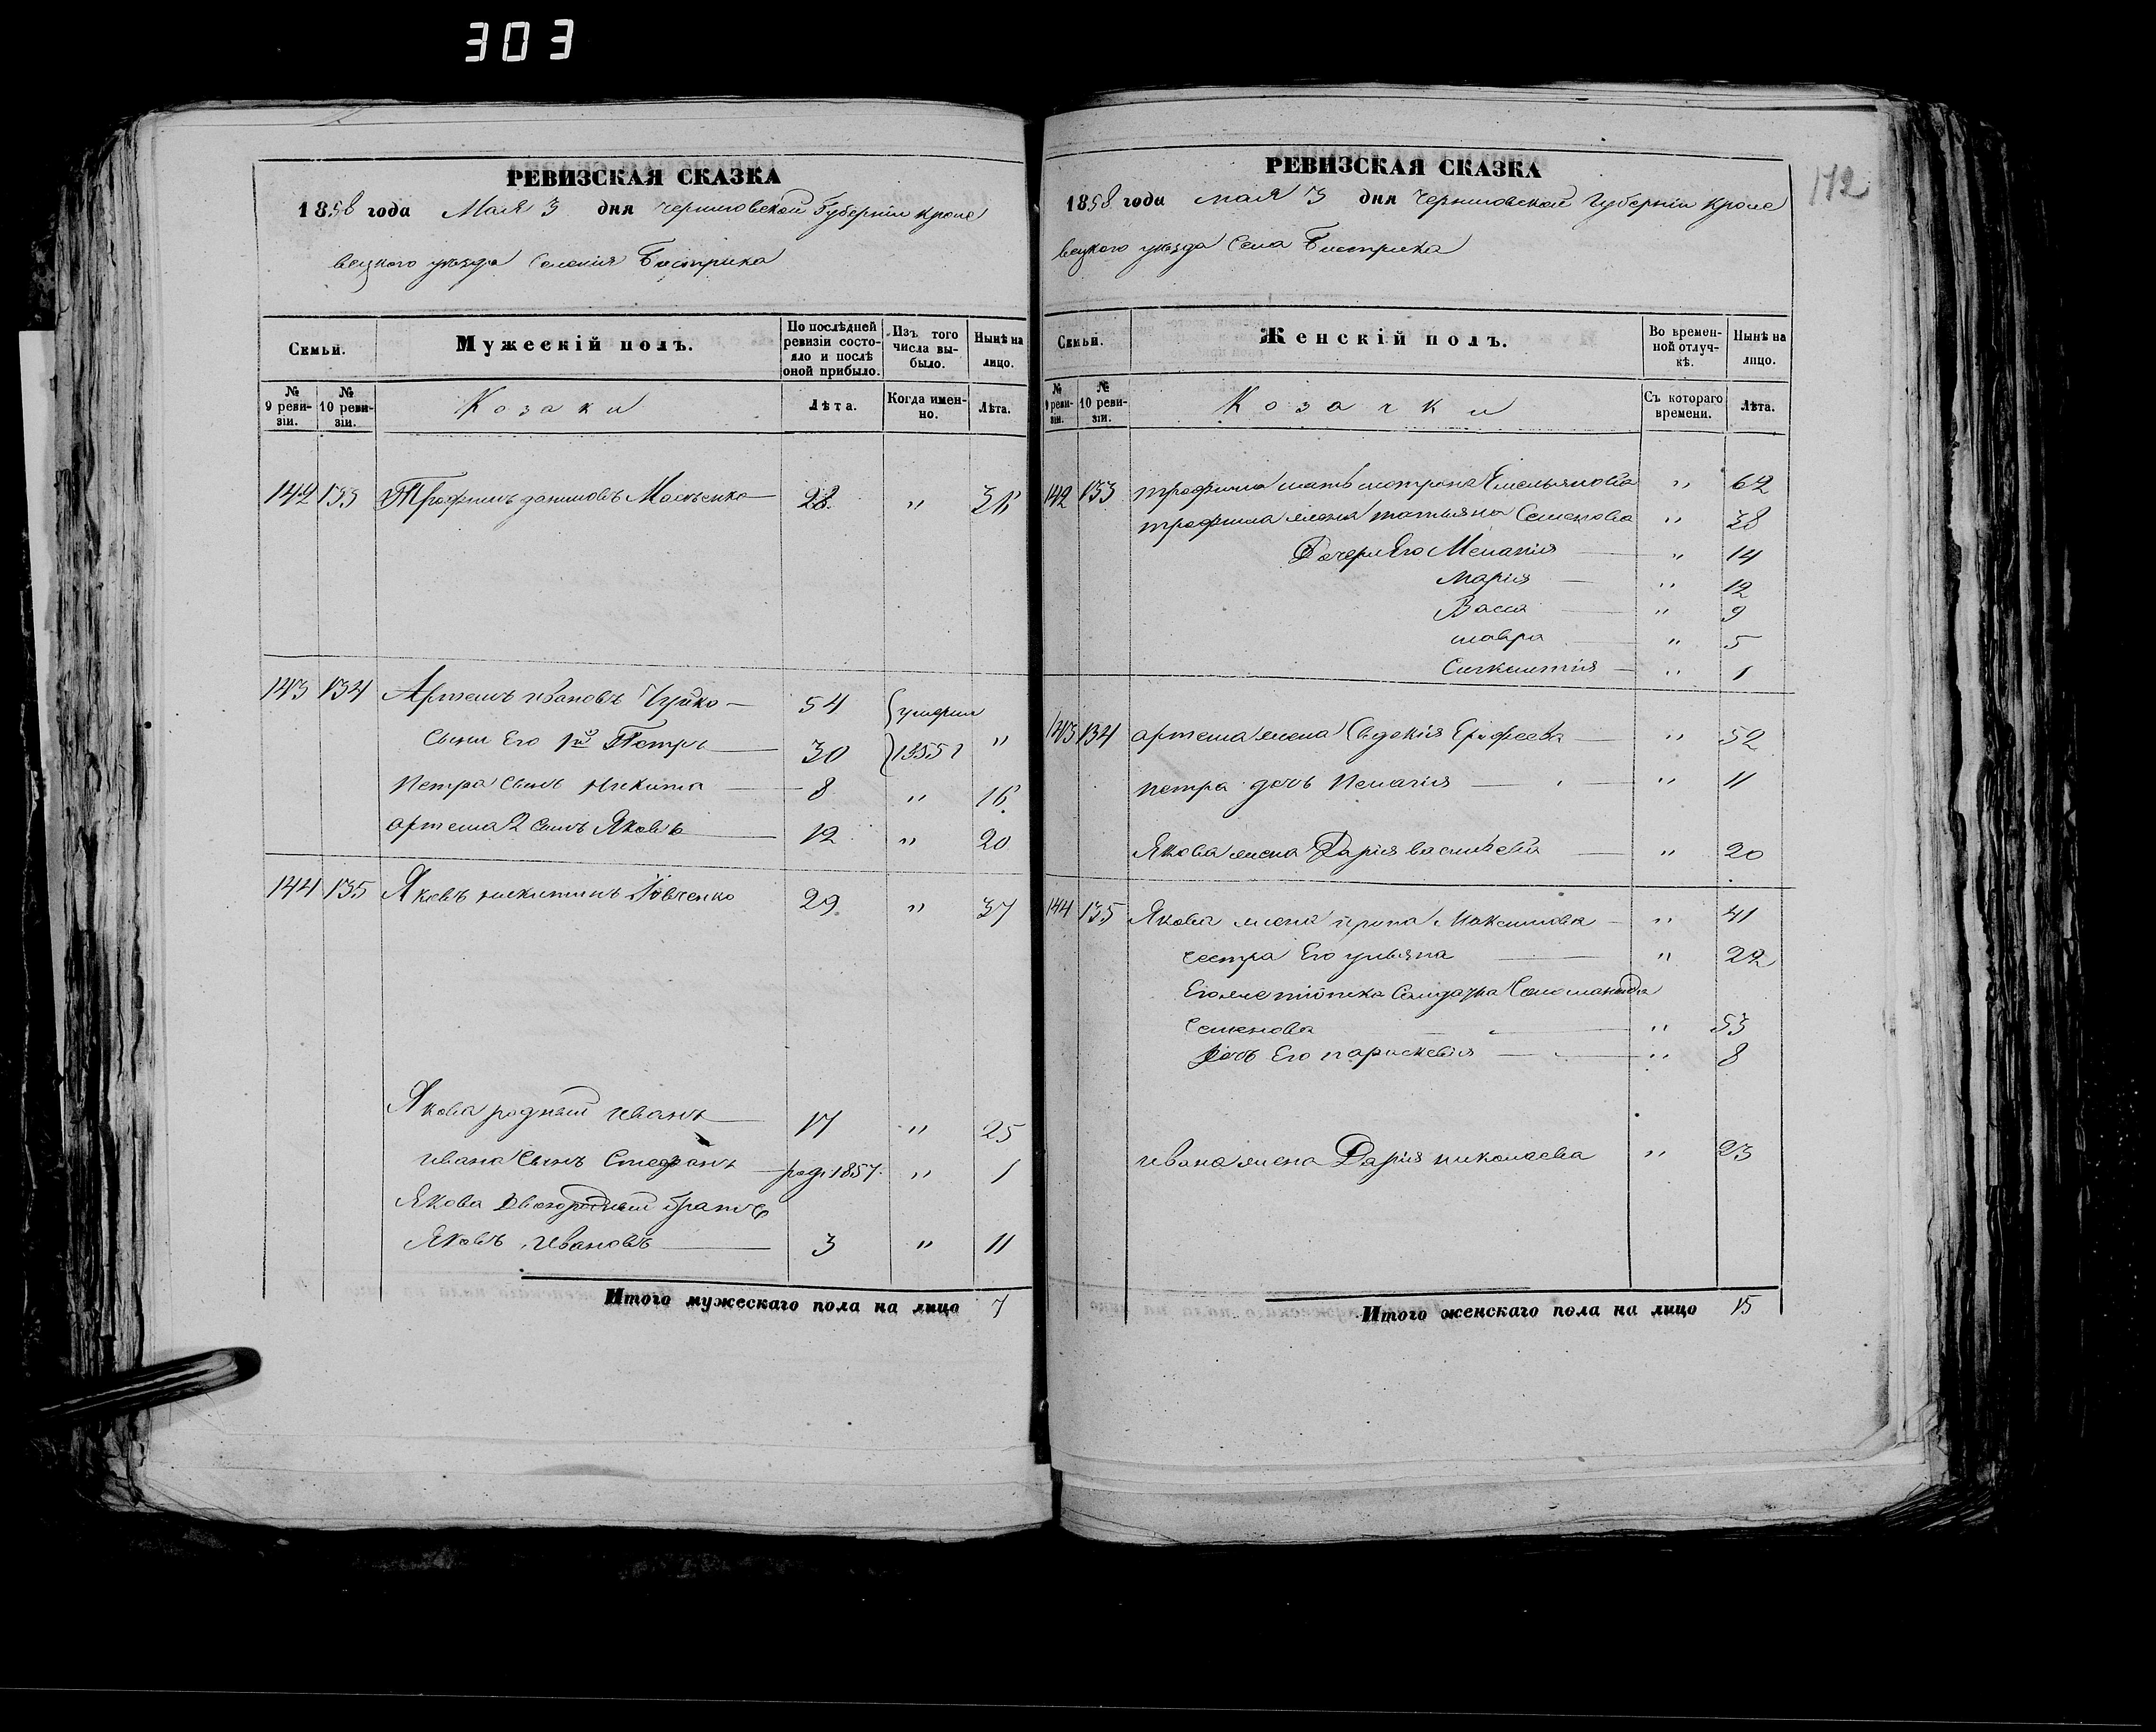 303
РЕВИЗСКАЯ СКАЗКА
1858 года Мая 3 дня Черниговской Губерніи Кроле
вецкого уезда Селенія Быстрика
Семьи.
Мужескій полъ.
По послѣдней ревизіи состояло и послѣ оной прибыло.
Изъ того числа выбыло.
Нынѣ на лицо.
№ 9 ревизіи.
№ 10 ревизіи.
Козаки
Лѣта.
Когда именно.
Лѣта.
142 133 Трофимъ 28 " 36
143 134 Артемъ Ивановъ Чуйко 54 умерли
Сыни Его 1й Петръ 30 1855 г "
Петра Сынъ Никита 8 " 16
Артема 2 Сынъ Яковъ 12 " 20
144 135 Яковъ Никитинъ 29 " 37
Якова родный Иванъ 17 " 25
Ивана Сынъ Стефанъ род. 1857 " 1
Якова Двоюродный братъ
Яковъ Ивановъ 3 " 11
Итого мужескаго пола на лицо 7
172
РЕВИЗСКАЯ СКАЗКА
1858 года мая 3 дня Черниговской Губерніи Кроле
вецкого уезда Села Быстрика
Семьи.
Женскій полъ.
Во временной отлучкѣ.
Нынѣ на лицо.
№ 9 ревизіи.
№ 10 ревизіи.
Козачки
Съ котораго времени.
Лѣта.
142 133 Трофима мать мотрона Емельянова " 62
трофима жена татьяна Семенова " 38
Дочери Его Меланія " 14
Марія " 12
Васса " 9
мавра " 5
" 1
143 134 артема жена Евдокія Ерофеева " 52
петра дочь " 11
Якова жена Дарія василіева " 20
144 135 Якова жена ирина Максимова " 41
сестра Его ульяна " 22
Его же тіотка Солдатка Соломанида
Семенова " 53
Дочь Его параскевія " 8
ивана жена Дарія николаева " 23
Итого женскаго пола на лицо 15